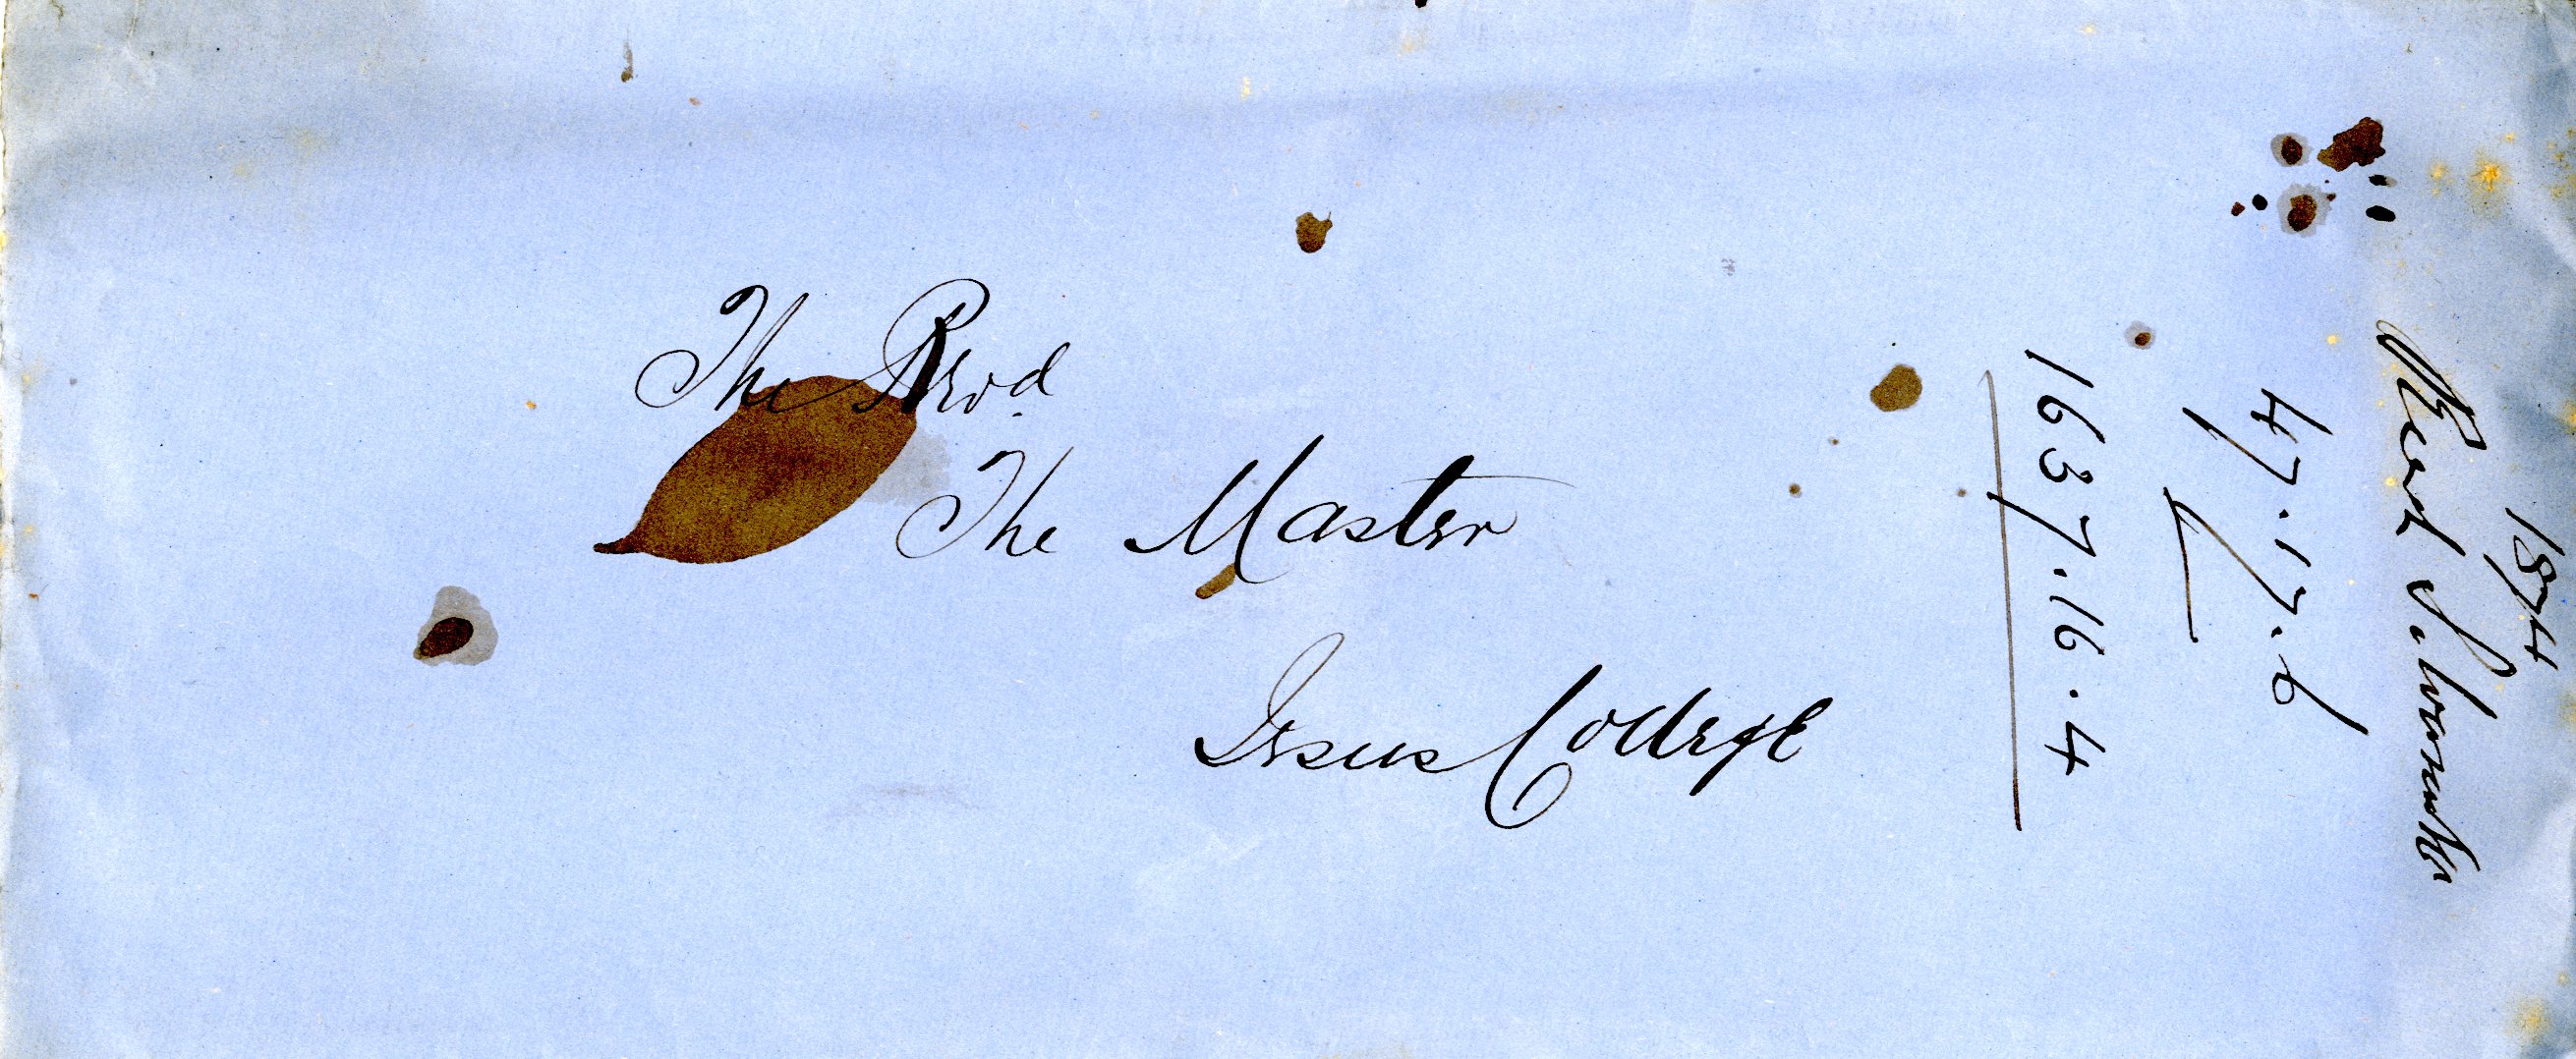 The Revd.
The Master
Jesus College
1874
47.17.6
1637.16.4